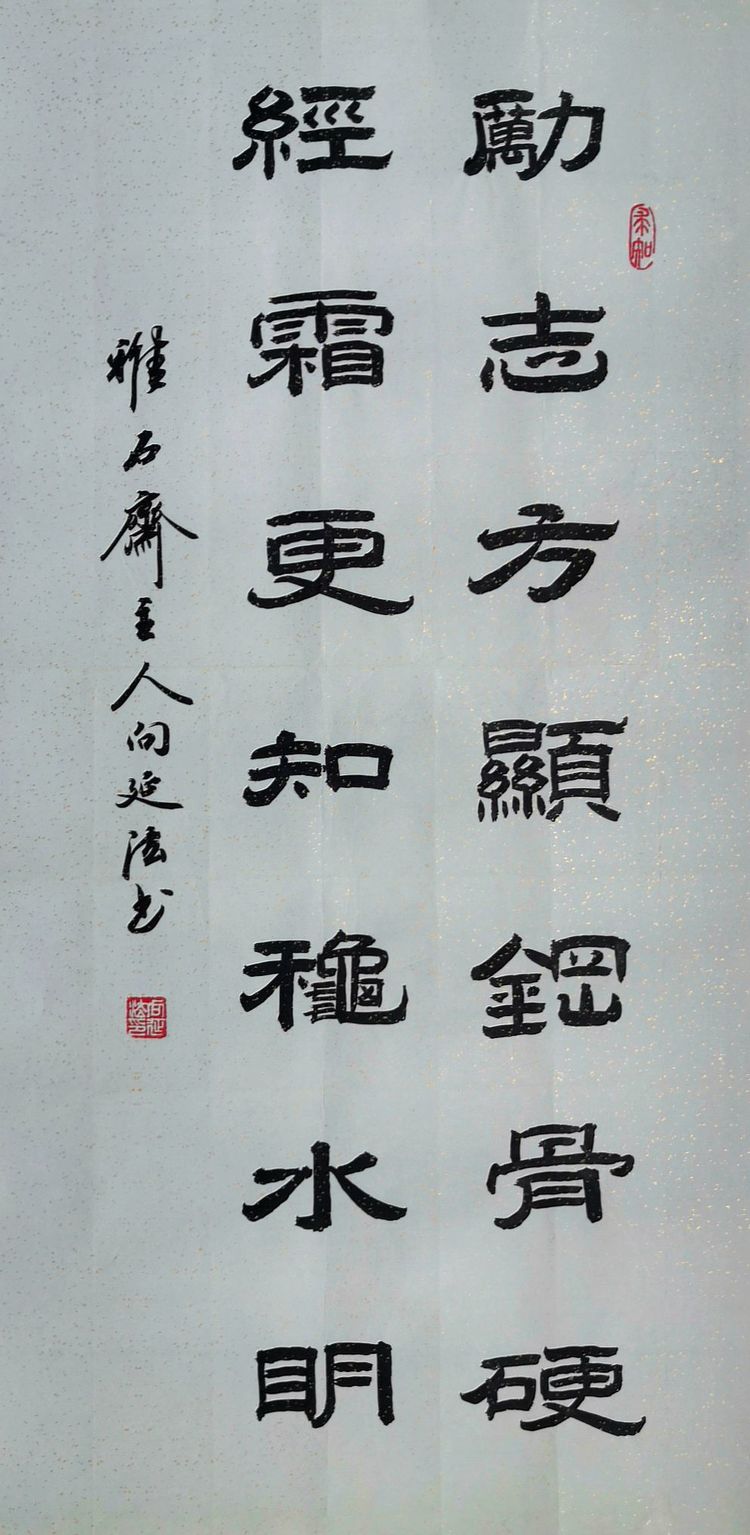 勵志方顯鋼骨硬
經霜更知龝水明
雅石齋主人向延法书